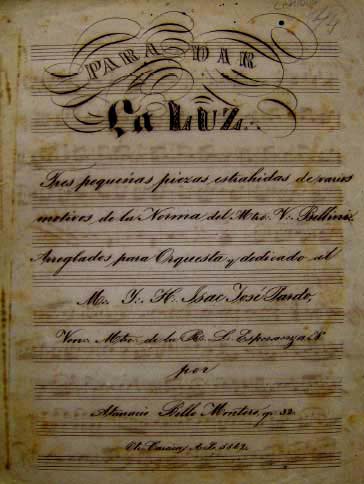 PARA DAR
La LUZ.
Tres pequeñas piezas, estrahidas de varios
motivos de la Norma del Mtro. V. Bellini,
Arreglados para Orquesta y dedicado al
M. Y. H. Isac José Pardo,
Ven. Mtro. de la R. L. Esperanza
por
Atanacio Bello Montero,
Caracas